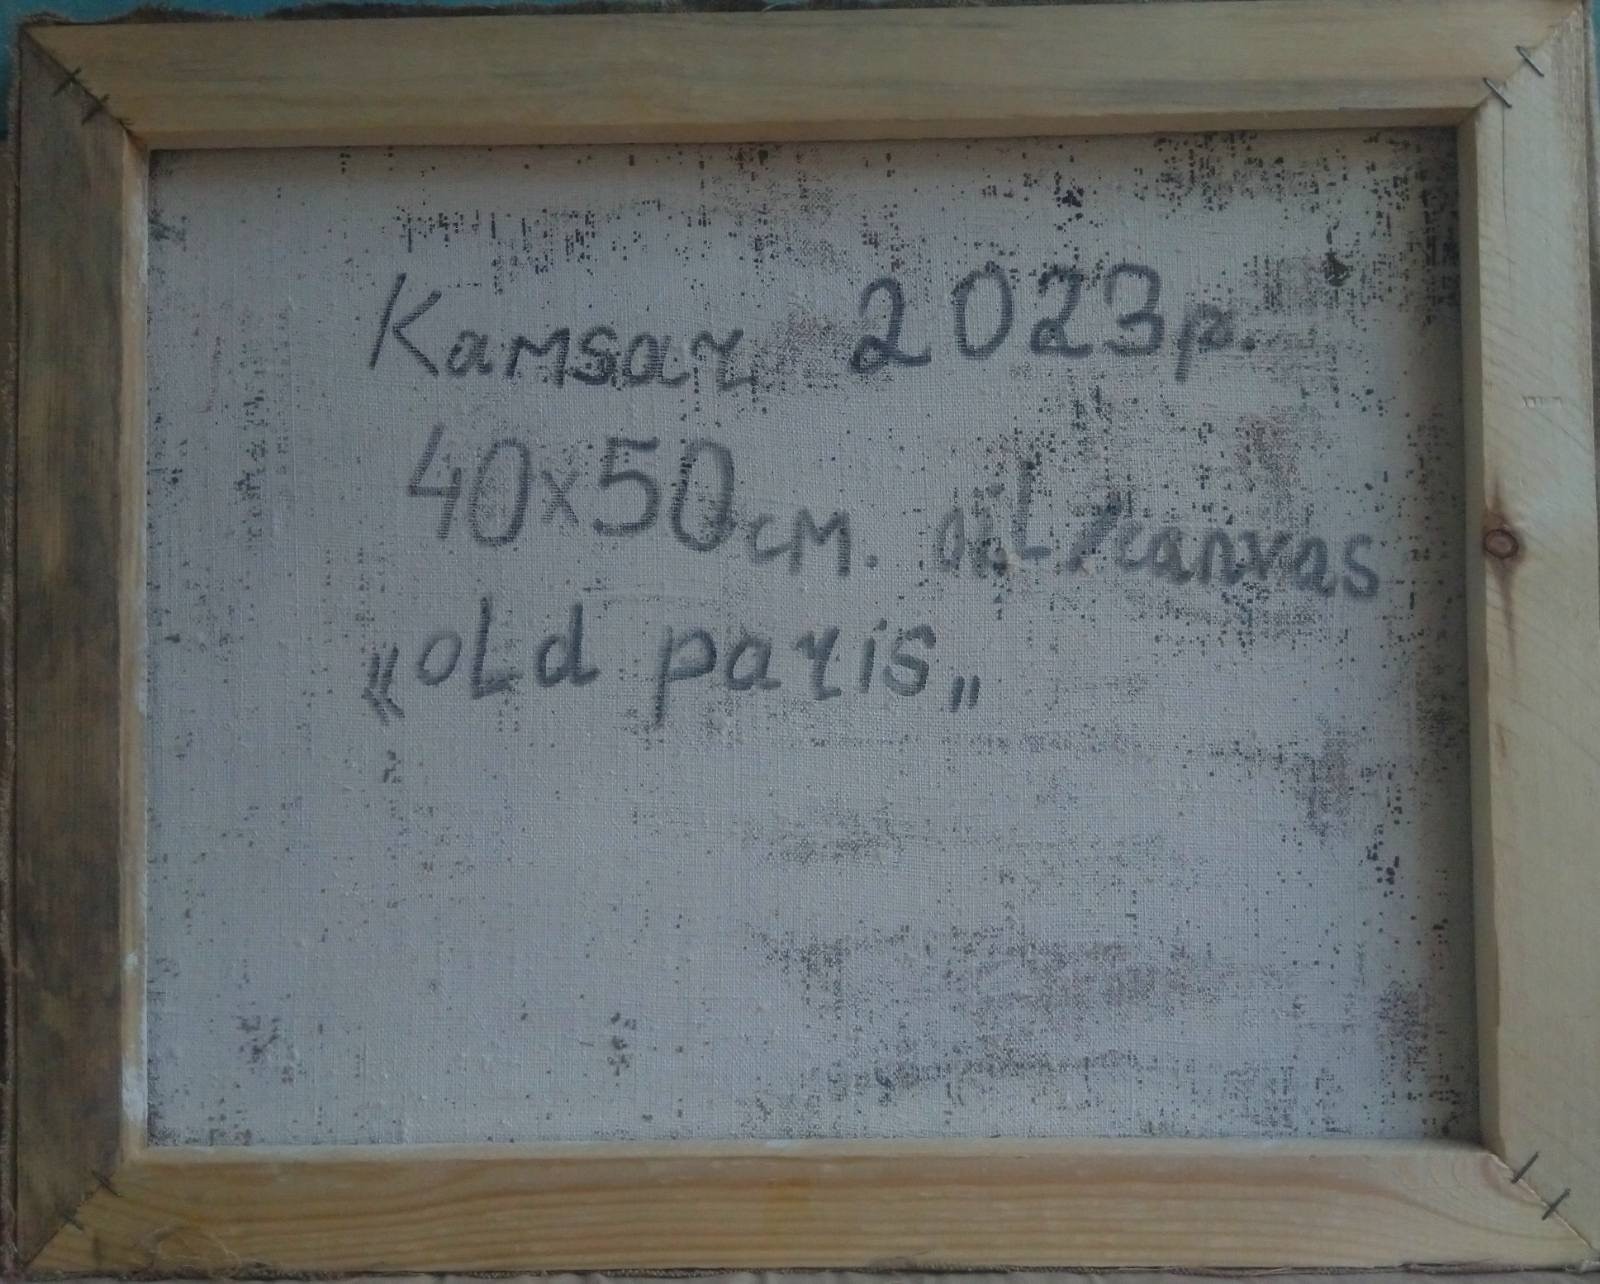 Kamsar 2023р.
40x50см. oil/canvas
"old paris"